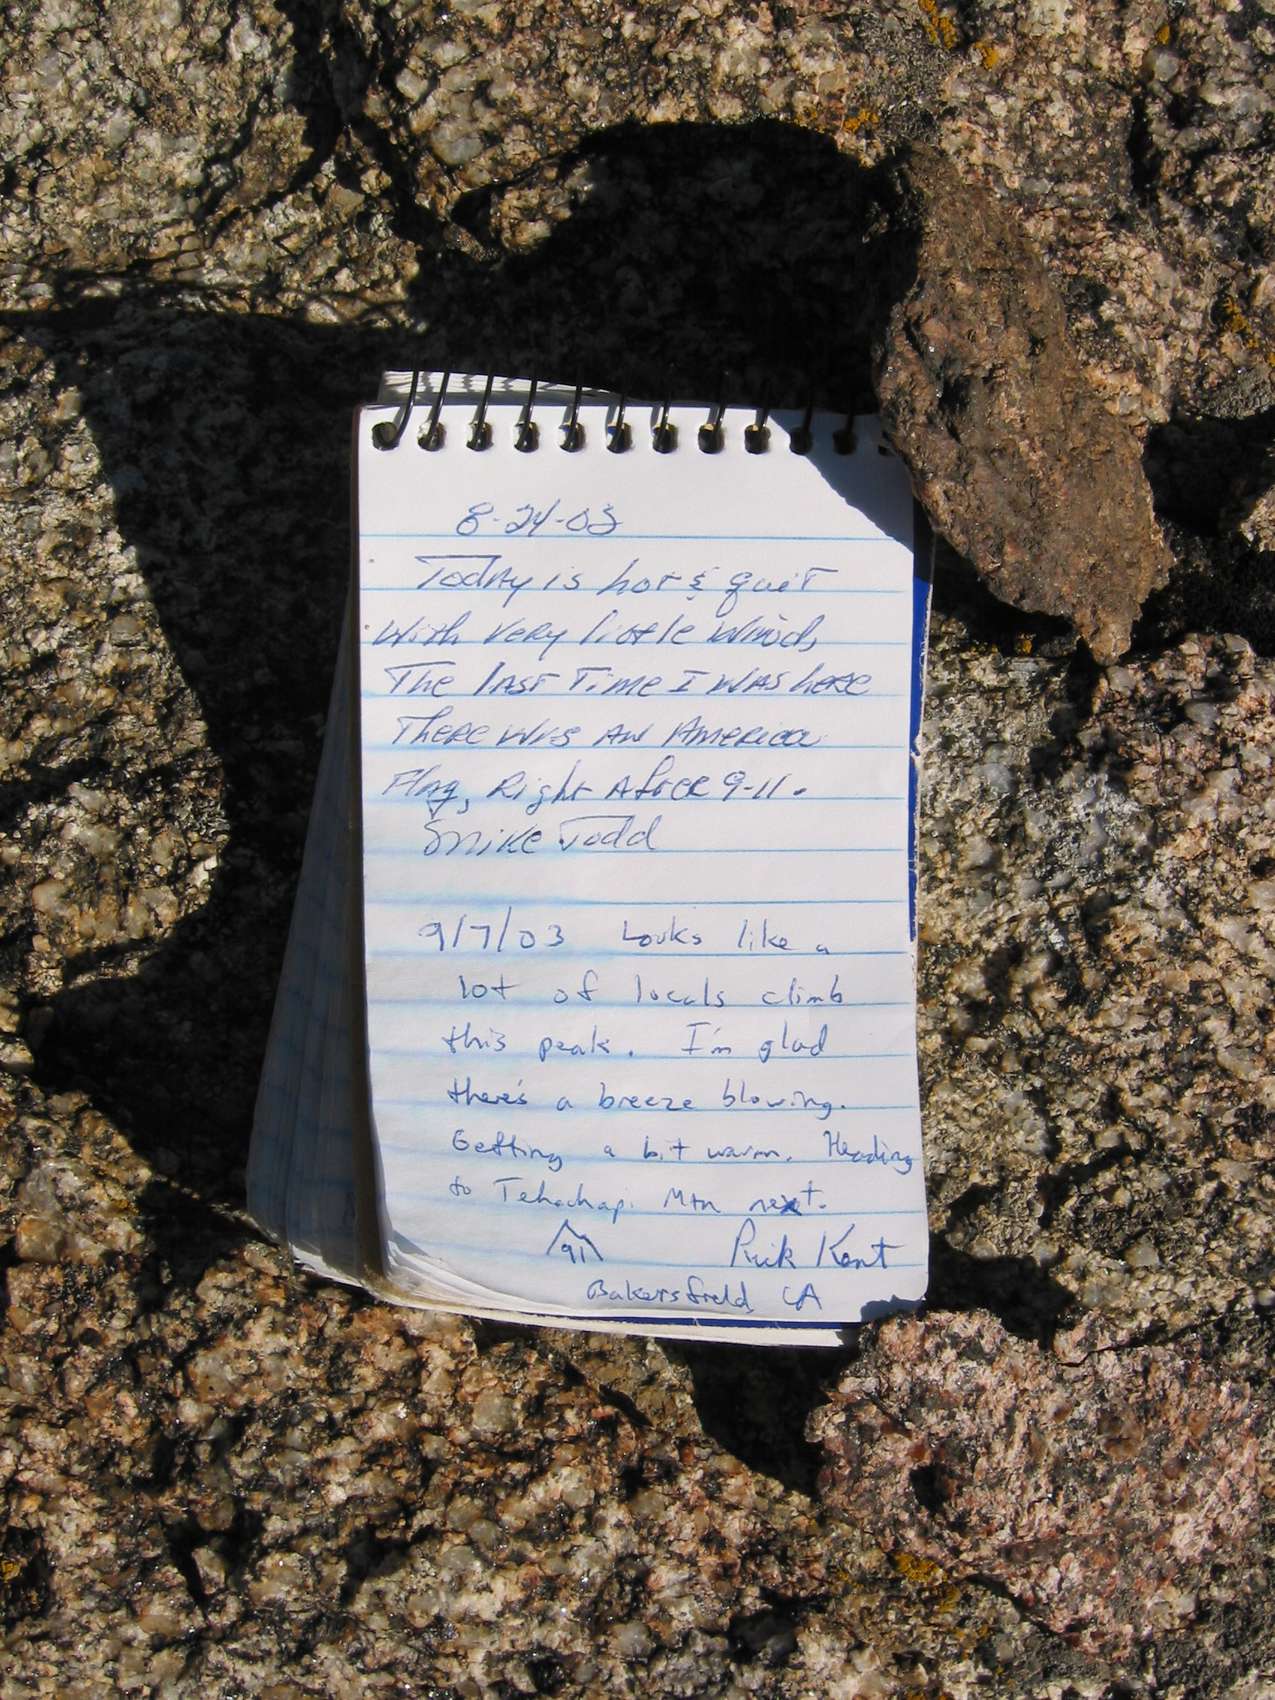 8-24-03
Today is hot & quit
With Very little Winds,
The last Time I was here
There was an America
Flag, Right After 9-11.
Mike Todd
9/7/03 Looks like a
lot of locals climb
this peak. I'm glad
there's a breeze blowing.
Getting a bit warm. Heading
to Tehachapi Mtn next.
91 Rick Kent
Bakersfield CA